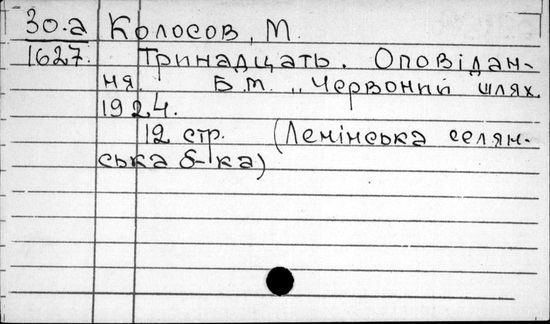 30.а Колосов, М.
1627. Тринадцать. Оповідан-
ня. Б.м. „Червоний шлях
1924.
12 стр. (Ленінська селян-
ська б-ка)